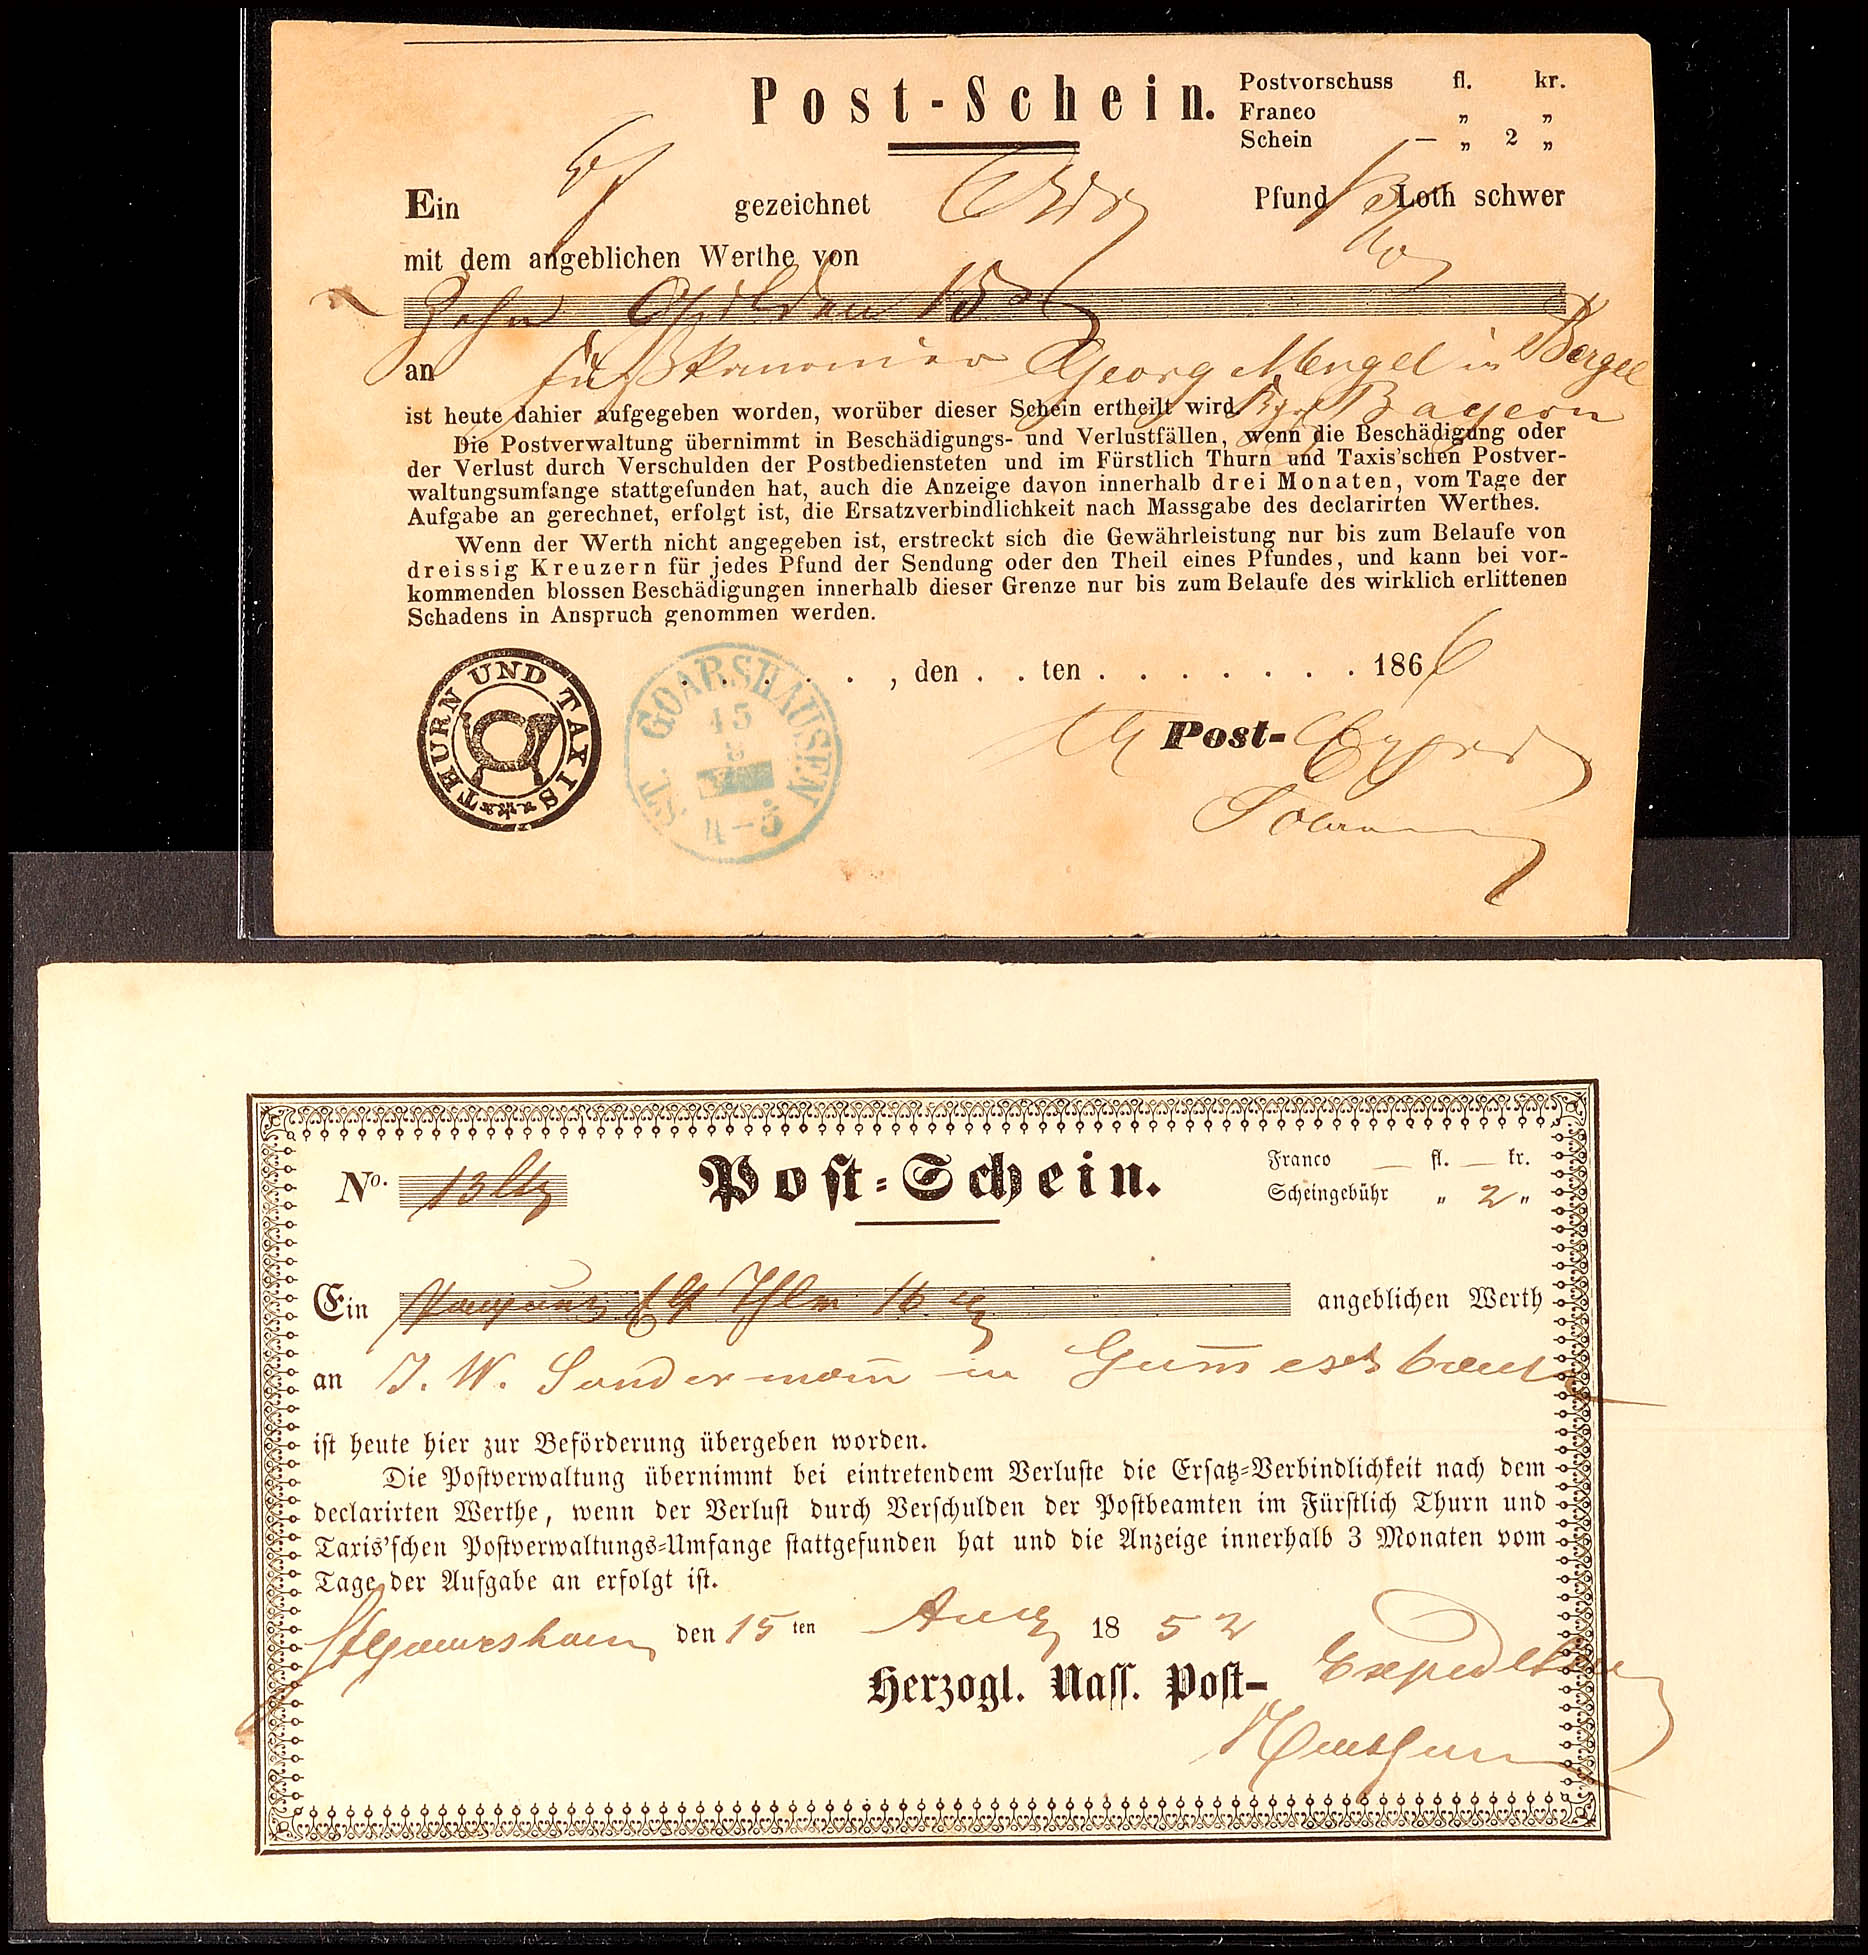 Post-Schein.
Postvorschuss fl. kr.
Franco „ „
Schein — „ 2 „
Ein gezeichnet Pfund Loth schwer
mit dem angeblichen Werthe von
Zehn Gulden 15
an Georg Mengel in Bergel
ist heute dahier aufgegeben worden, worüber dieser Schein ertheilt wird. Bayern
Die Postverwaltung übernimmt in Beschädigungs- und Verlustfällen, wenn die Beschädigung oder
der Verlust durch Verschulden der Postbediensteten und im Fürstlich Thurn und Taxis'schen Postver-
waltungsumfange stattgefunden hat, auch die Anzeige davon innerhalb drei Monaten, vom Tage der
Aufgabe an gerechnet, erfolgt ist, die Ersatzverbindlichkeit nach Massgabe des declarirten Werthes.
Wenn der Werth nicht angegeben ist, erstreckt sich die Gewährleistung nur bis zum Belaufe von
dreissig Kreuzern für jedes Pfund der Sendung oder den Theil eines Pfundes, und kann bei vor-
kommenden blossen Beschädigungen innerhalb dieser Grenze nur bis zum Belaufe des wirklich erlittenen
Schadens in Anspruch genommen werden.
. . . . . , den . . ten . . . . . . . 1866
THURN UND TAXIS
ST. GOARSHAUSEN
15
4-5
Post-
No. 13
Post-Schein.
Franco — fl. — kr.
Scheingebühr „ 2 „
Ein 16 angeblichen Werth
an J. W. Sondermann in Gummersbach
ist heute hier zur Beförderung übergeben worden.
Die Postverwaltung übernimmt bei eintretendem Verluste die Ersatz-Verbindlichkeit nach dem
declarirten Werthe, wenn der Verlust durch Verschulden der Postbeamten im Fürstlich Thurn und
Taxis'schen Postverwaltungs-Umfange stattgefunden hat und die Anzeige innerhalb 3 Monaten vom
Tage der Aufgabe an erfolgt ist.
den 15ten Aug 1852
Herzogl. Nass. Post- Expedition